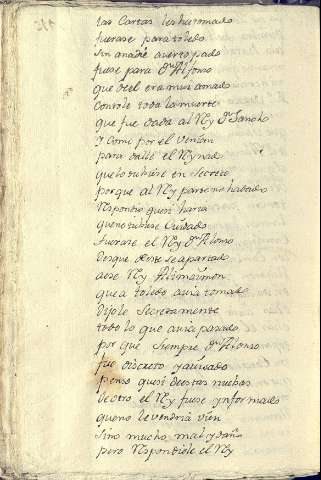 las Cartas les ha tomado
fuerase para toledo
sin anadie auer topado
fuese para Dn Alfonso
que del era muy amado
Contole toda la muerte
que fue dada al Rey Dn Sancho
y Como por el venian
para dalle el Reynad
que lo tubiese en secreto
porque al Rey parte no ha dado
Respondio quesi haria
que no tubiese Cuidado
fuerase el Rey Dn Alonso
desque deste se a partado
a ese Rey Alimaimon
que a toledo auia tomado
Diole secretamente
todo lo que auia pasado
por que siempre Dn Alfonso
fue discreto y auisado
penso quesi destas nuebas
de otro el Rey fuese ynformado
que no le vendria vien
sino mucho mal y daño
pero Respondiole el Rey